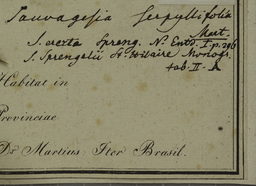 Sauvagesia serpyllifolia
Mart.
S. erecta Spreng. N. Entd. I p. 296
S. Sprengelii St. Hilaire Monogr.
tab. II. A
Habitat in
Provinciae
Dr Martius Iter Brasil.